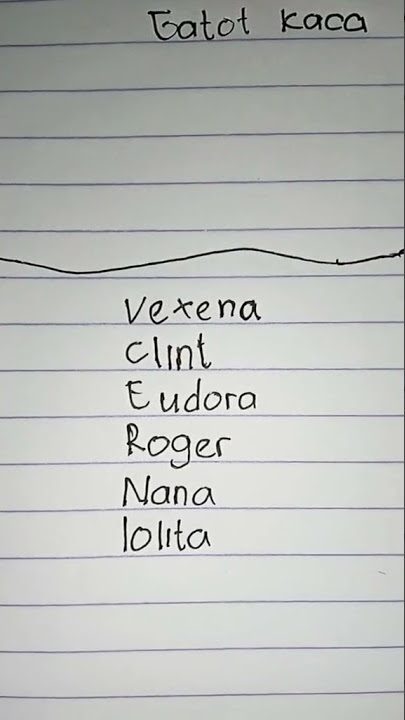 Gatot kaca
Vexena
Clint
Eudora
Roger
Nana
lolita